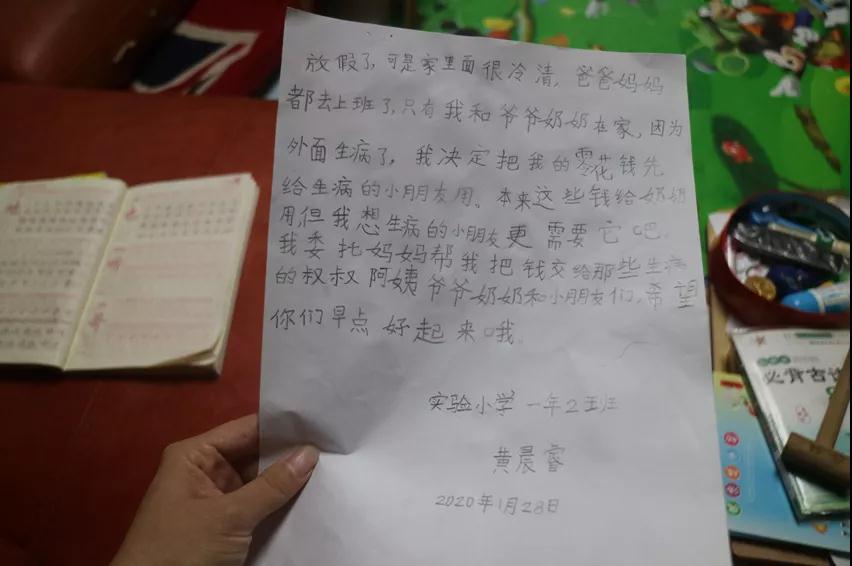 放假了,可是家里面很冷清,爸爸妈妈
都去上班了,只有我和爷爷奶奶在家,因为
外面生病了,我决定把我的零花钱先
给生病的小朋友用。本来这些钱给奶奶
用,但我想生病的小朋友更需要它吧。
我委托妈妈帮我把钱交给那些生病
的叔叔阿姨爷爷奶奶和小朋友们,希望
你们早点好起来哦。
实验小学一年2班
黄晨睿
2020年1月28日
必背古诗